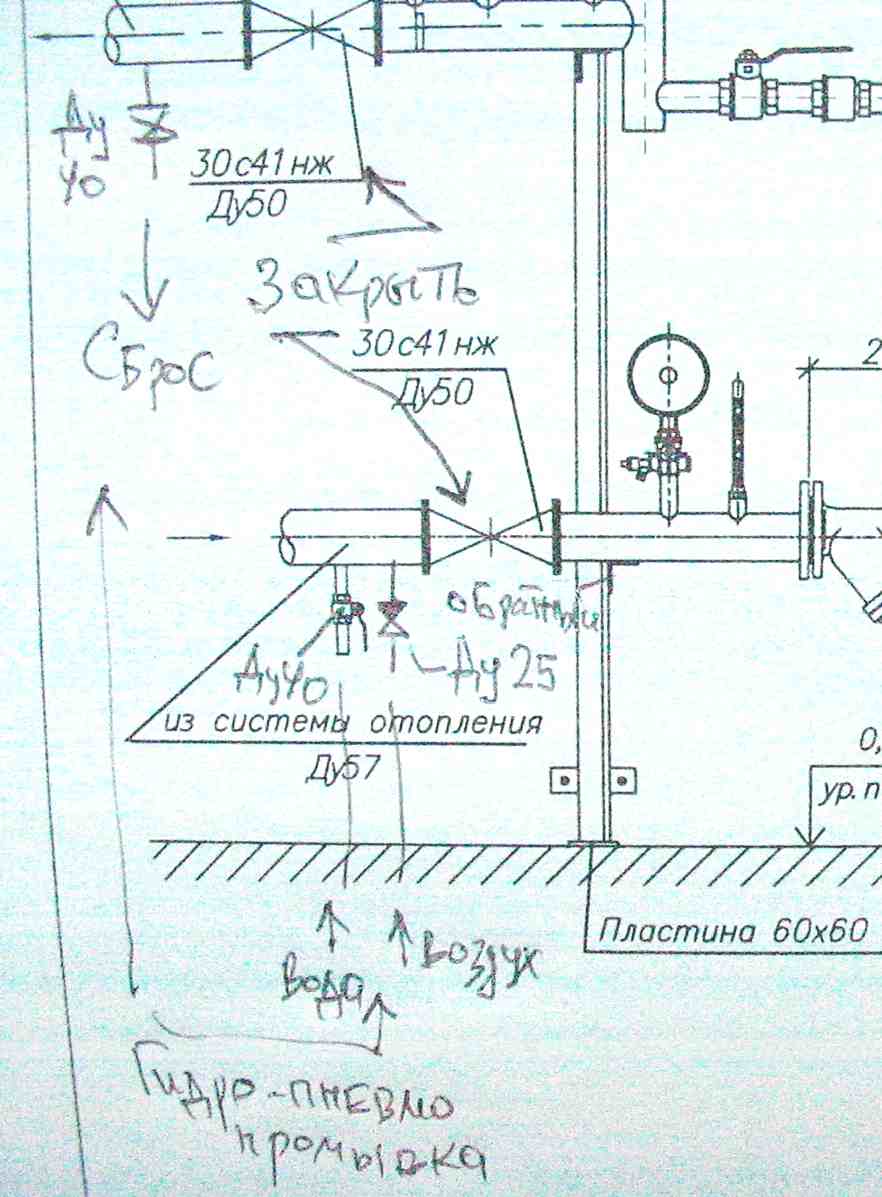 Ду
40
30с41нж
Ду50
Закрыть
Сброс
30с41нж
Ду50
2
обратный
Ду40
Ду 25
из системы отопления
Ду57
0,
ур. п
Пластина 60х60
Вода
Воздух
Гидро-пневмо
промывка